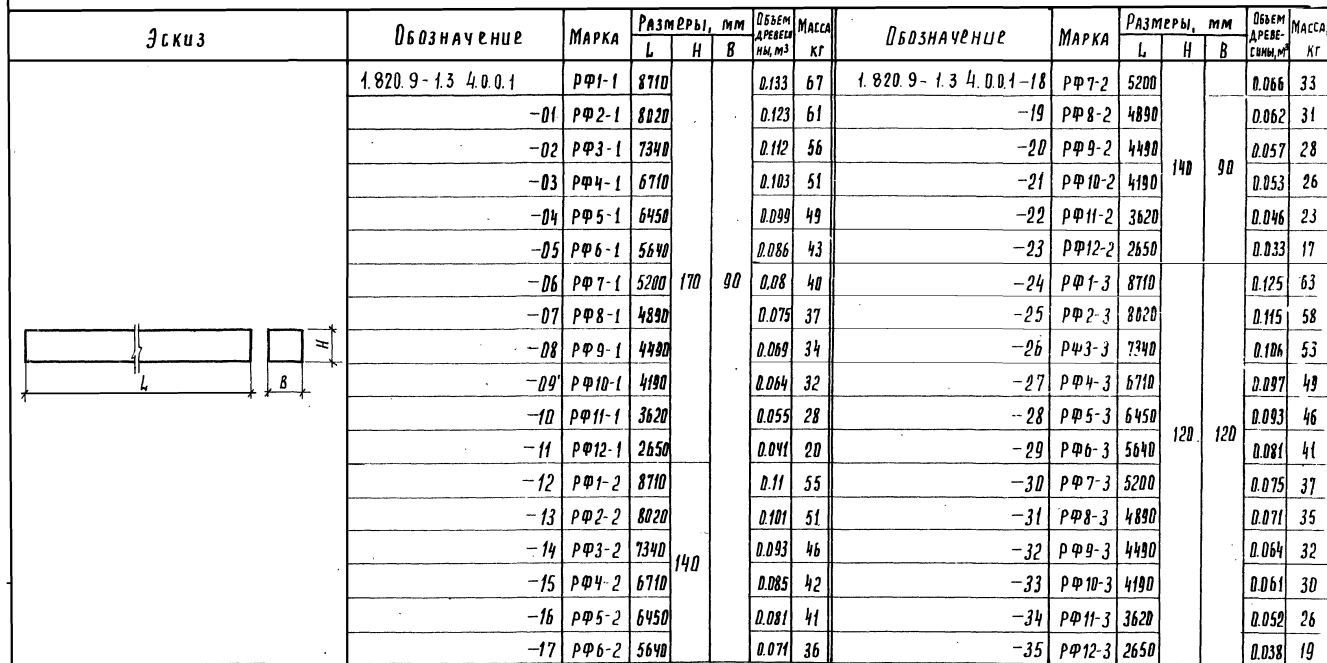 Эскиз Обозначение Марка Размеры, мм Объем древесины, м³ Масса, кг Обозначение Марка Размеры, мм Объем древесины, м³ Масса, кг
L H B L H B
1.820.9-1.3 4.0.0.1 РФ1-1 8710 0.133 67 1.820.9-1.3 4.0.0.1-18 РФ7-2 5200 0.066 33
-01 РФ2-1 8020 0.123 61 -19 РФ8-2 4890 0.062 31
-02 РФ3-1 7340 0.112 56 -20 РФ9-2 4490 140 90 0.057 28
-03 РФ4-1 6710 0.103 51 -21 РФ10-2 4190 0.053 26
-04 РФ5-1 6450 0.099 49 -22 РФ11-2 3620 0.046 23
-05 РФ6-1 5640 0.086 43 -23 РФ12-2 2650 0.033 17
-06 РФ7-1 5200 170 90 0,08 40 -24 РФ1-3 8710 0.125 63
-07 РФ8-1 4890 0.075 37 -25 РФ2-3 8020 0.115 58
H -08 РФ9-1 4490 0.069 34 -26 РФ3-3 7340 0.106 53
L B -09 РФ10-1 4190 0.064 32 -27 РФ4-3 6710 0.097 49
-10 РФ11-1 3620 0.055 28 -28 РФ5-3 6450 0.093 46
-11 РФ12-1 2650 0.041 20 -29 РФ6-3 5640 120 120 0.081 41
-12 РФ1-2 8710 0.11 55 -30 РФ7-3 5200 0.075 37
-13 РФ2-2 8020 0.101 51 -31 РФ8-3 4890 0.071 35
-14 РФ3-2 7340 140 0.093 46 -32 РФ9-3 4490 0.064 32
-15 РФ4-2 6710 0.085 42 -33 РФ10-3 4190 0.061 30
-16 РФ5-2 6450 0.081 41 -34 РФ11-3 3620 0.052 26
-17 РФ6-2 5640 0.071 36 -35 РФ12-3 2650 0.038 19